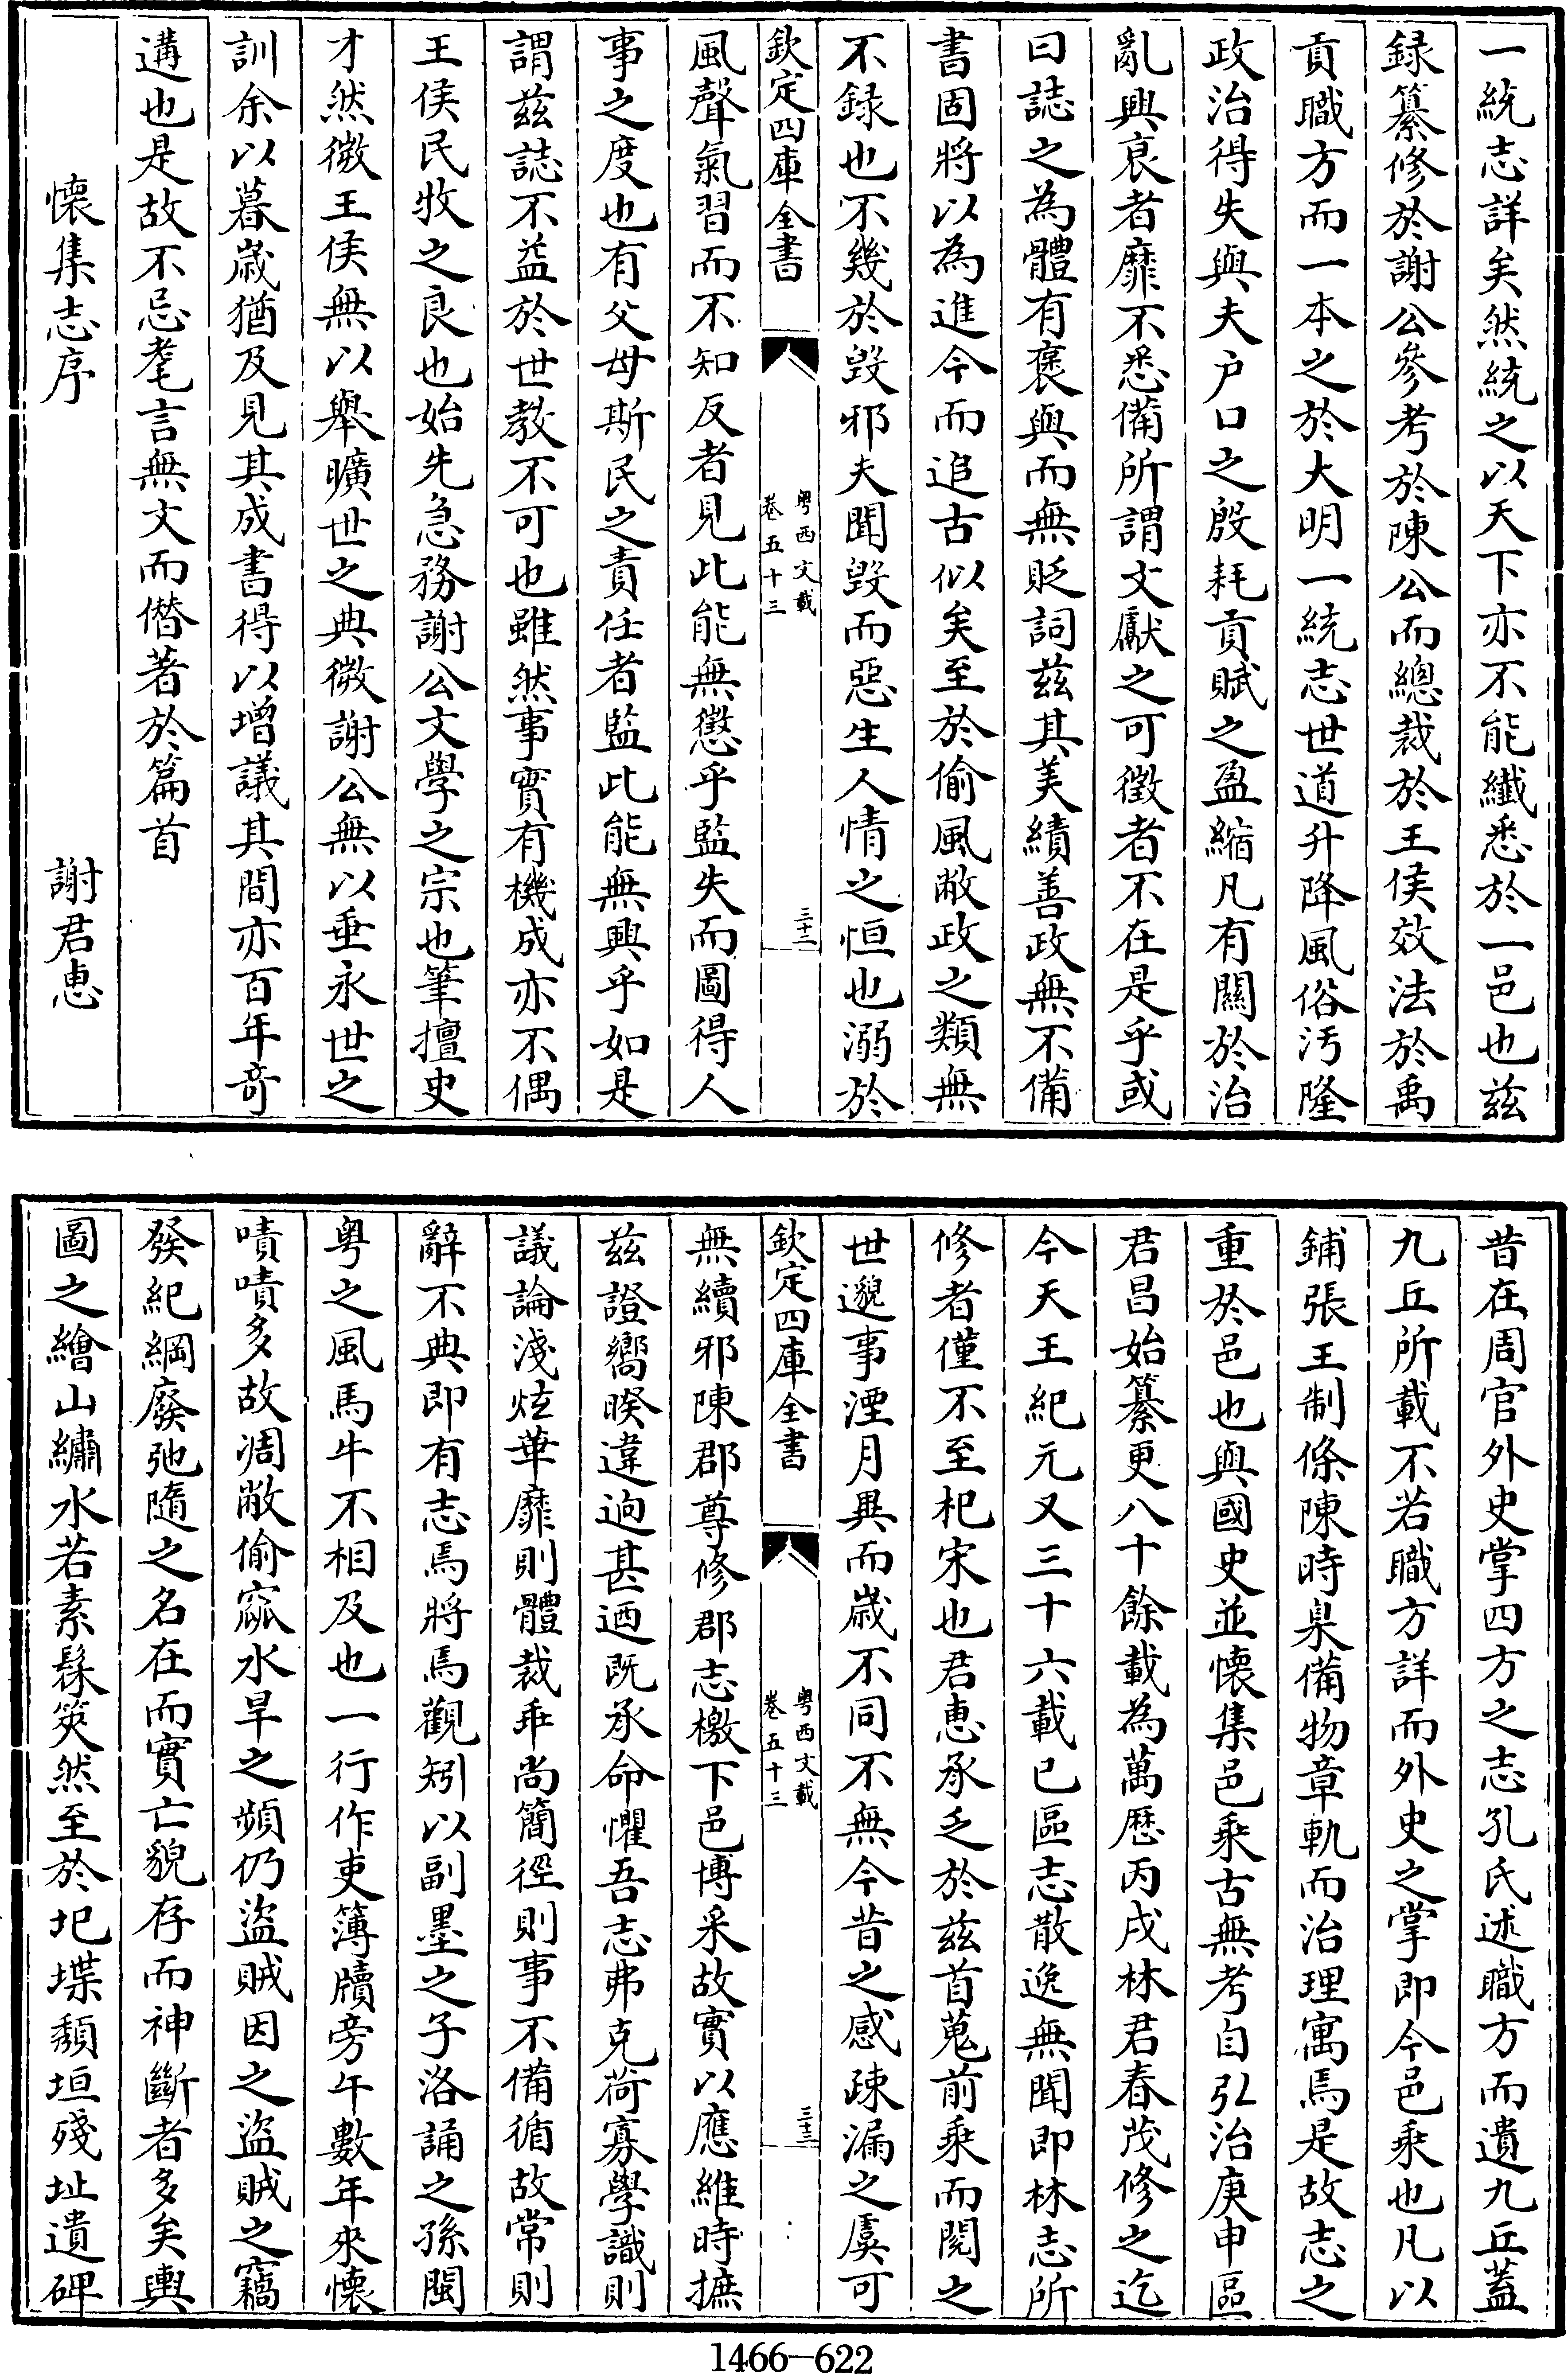 一統志詳矣然統之以天下亦不能纎悉於一邑也兹
録纂修於謝公參考於陳公而總裁於王侯效法於禹
貢職方而一本之於大明一統志世道升降風俗汚隆
政治得失與夫户口之殷耗貢賦之盈縮凡有闗於治
亂興衰者靡不悉備所謂文獻之可徵者不在是乎或
曰誌之為體有褒與而無貶詞兹其美績善政無不備
書固將以為進今而追古似矣至於偷風敝政之類無
不録也不幾於毁邪夫聞毁而惡生人情之恒也溺於
欽定四庫全書
粤西文載
卷五十三
三十二
風聲氣習而不知反者見此能無懲乎監失而圖得人
事之度也有父母斯民之責任者監此能無興乎如是
謂兹誌不益於世教不可也雖然事實有機成亦不偶
王侯民牧之良也始先急務謝公文學之宗也筆擅史
才然微王侯無以舉曠世之典微謝公無以垂永世之
訓余以暮歲猶及見其成書得以増議其間亦百年竒
遘也是故不忌耄言無文而僭著於篇首
懐集志序 謝君惠
昔在周官外史掌四方之志孔氏述職方而遺九丘蓋
九丘所載不若職方詳而外史之掌即今邑乘也凡以
鋪張王制條陳時臬備物章軌而治理寓焉是故志之
重於邑也與國史並懐集邑乘古無考自弘治庚申區
君昌始纂更八十餘載為萬歴丙戌林君春茂修之迄
今天王紀元又三十六載已區志散逸無聞即林志所
修者僅不至杞宋也君惠承乏於兹首蒐前乘而閲之
世邈事湮月異而歲不同不無今昔之感疎漏之虞可
欽定四庫全書
粤西文載
卷五十三
三十三
無續邪陳郡尊修郡志檄下邑博采故實以應維時摭
兹證嚮睽違逈甚迺既承命懼吾志弗克荷寡學識則
議論淺炫華靡則體裁乖尚簡徑則事不備循故常則
辭不典即有志焉將焉觀矧以副墨之子洛誦之孫閩
粤之風馬牛不相及也一行作吏簿牘旁午數年來懐
嘖嘖多故凋敝偷窳水旱之頻仍盜賊因之盜賊之竊
發紀綱廢弛隨之名在而實亡貌存而神斷者多矣輿
圖之繪山繡水若素髹筴然至於圯堞頽垣殘址遺碑
1466—622